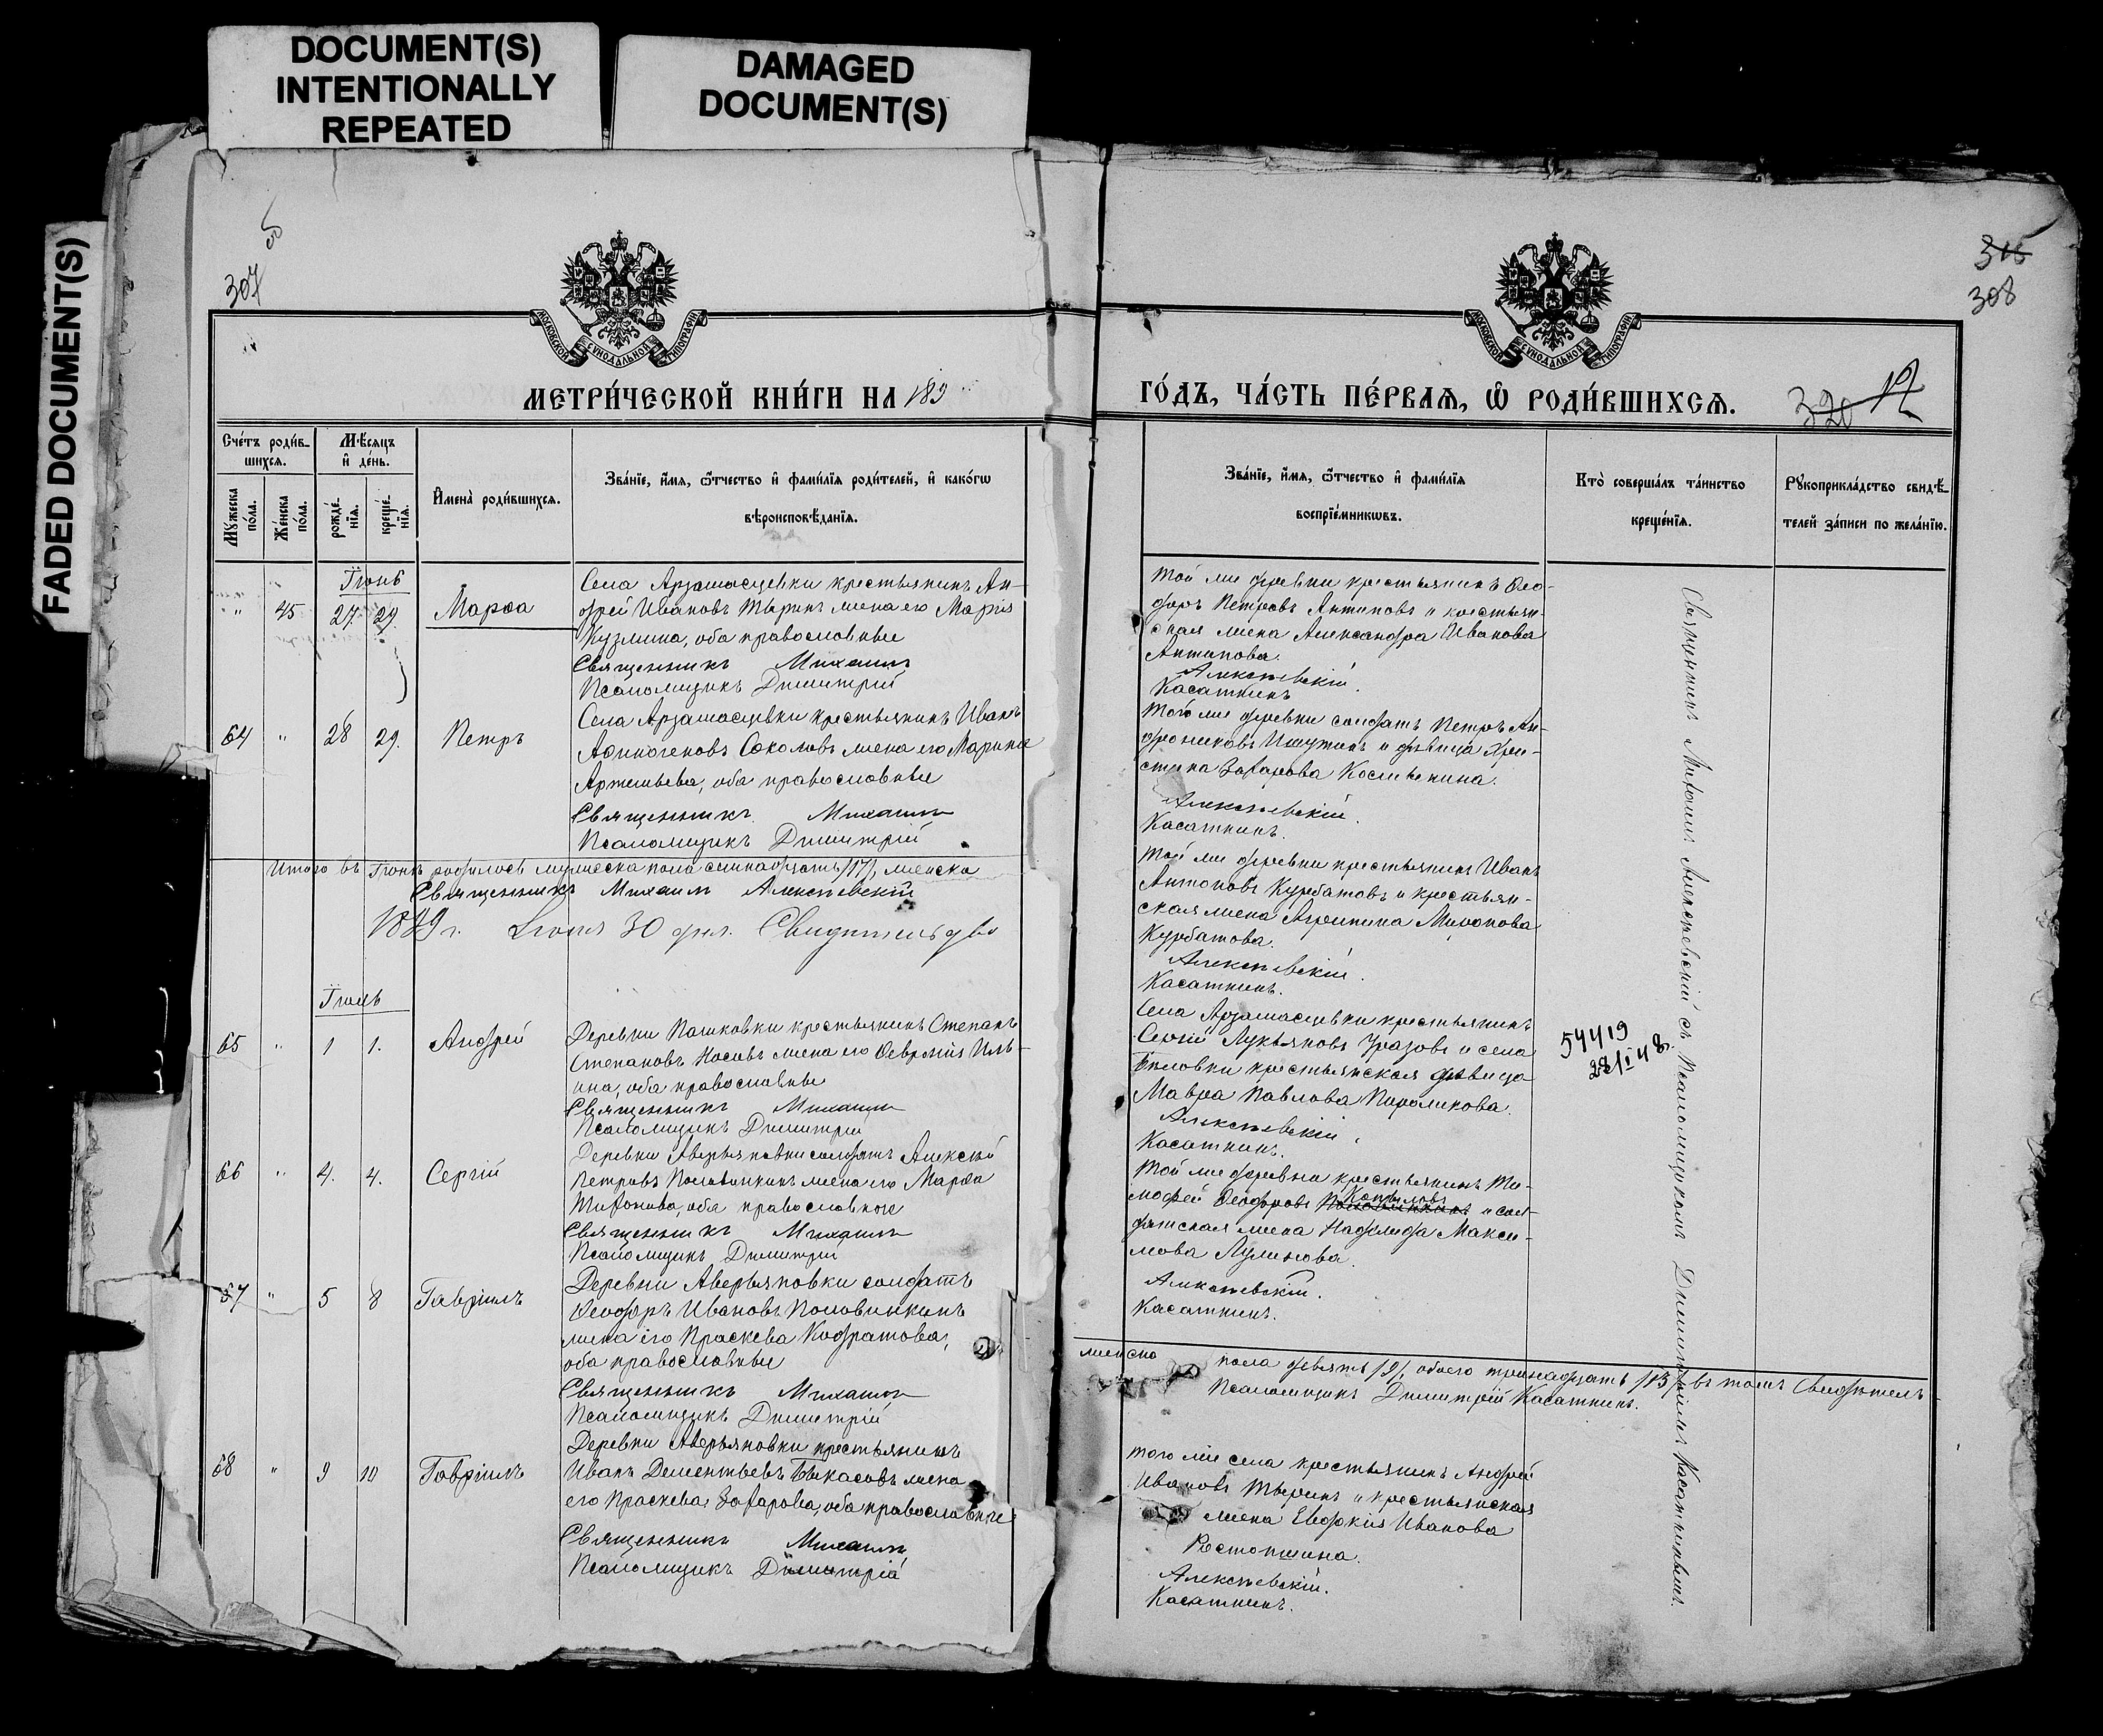 DOCUMENT(S)
INTENTIONALLY
REPEATED
DAMAGED
DOCUMENT(S)
FADED DOCUMENT(S)
307
315
308
МОСКОВСКОЙ СУНОДАЛЬНОЙ ТИПОГРАФІИ
МОСКОВСКОЙ СУНОДАЛЬНОЙ ТИПОГРАФІИ
МЕТРИ́ЧЕСКОЙ КНИ́ГИ НА 189
ГО́ДЪ, ЧА́СТЬ ПЕ́РВАѦ, Ѽ РОДИ́ВШИХСѦ.
320 12
Сче́тъ роди́в-
шихсѧ.
Мꙋжеска по́ла.
Же́нска по́ла.
Мѣ́сѧцъ
и҆ де́нь.
рожде́-
нїѧ.
креще́-
нїѧ.
И҆мена̀ роди́вшихсѧ.
Зва́нїе, и҆́мѧ, ѻ҆́тчество и҆ фами́лїѧ роди́телей, и҆ како́гѡ
вѣроисповѣ́данїѧ.
Зва́нїе, и҆́мѧ, ѻ҆́тчество и҆ фами́лїѧ
воспрїе́мникѡвъ.
Кто̀ соверша́лъ та́инство
креще́нїѧ.
Рꙋкоприкла́дство свидѣ́-
телей за́писи по жела́нїю.
Іюнь
" 45 27 29 Марѳа
Села Арзамасцевки крестьянинъ Ан-
дрей Ивановъ Тыринъ жена его Марія
Кузмина, оба православные
Священникъ Михаилъ
Псаломщикъ Димитрій
Той же деревни крестьянинъ Ѳео-
доръ Петровъ Антиповъ и крестьян-
ская жена Александра Иванова
Антипова.
Алексѣевскій.
Касаткинъ
64 " 28 29. Петръ
Села Арзамасцевки крестьянинъ Иванъ
Аѳиногеновъ Соколовъ жена его Марина
Артемьева, оба православные
Священникъ Михаилъ
Псаломщикъ Димитрій
Того же деревни солдатъ Петръ Ан-
дрониковъ Ишутинъ и дѣвица Хри-
стина Захарова
Алексѣевскій.
Касаткинъ.
Итого въ Іюнѣ родилось мужеска пола семнадцать /17/, женска
Священникъ Михаилъ Алексѣевскій
30 дня. Свидѣтельство
Той же деревни крестьянинъ Иванъ
Антоновъ Курбатовъ и крестьян-
ская жена Агрипина Миронова
Курбатова.
Алексѣевскій.
Касаткинъ.
Іюль
65 " 1 1. Андрей
Деревни Пашковки крестьянинъ Степанъ
Степановъ Носовъ жена его Ѳевронія Иль-
ина, оба православные
Священникъ Михаилъ
Псаломщикъ Димитрій
Села Арзамасцевки крестьянинъ
Сергій Лукьяновъ Уразовъ и села
крестьянская дѣвица
Мавра Павлова
Алексѣевскій.
Касаткинъ.
54419
28/I 48г.
66 " 4. 4. Сергій
Деревни Аверьяновки солдатъ Алексѣй
Петровъ Половинкинъ жена его Марѳа
Тихонова, оба православные
Священникъ Михаилъ
Псаломщикъ Димитрій
Той же деревни крестьянинъ Ти-
моѳей Ѳеодоровъ Копыловъ и сол-
датская жена Надежда Макси-
мова
Алексѣевскій.
Касаткинъ.
67 " 5 8 Гавріилъ
Деревни Аверьяновки солдатъ
Ѳеодоръ Ивановъ Половинкинъ
жена его Праскева Кодратова,
оба православные
Священникъ Михаилъ
Псаломщикъ Димитрій
женска пола девять /9/, обоего тринадцать /13/ въ томъ Свидѣтель
Псаломщикъ Димитрій Касаткинъ.
68 " 9 10 Гавріилъ
Деревни Аверьяновки крестьянинъ
Иванъ Дементьевъ Бекасовъ жена
его Праскева Захарова, оба православные
Священникъ Михаилъ
Псаломщикъ Димитрій
Того же села крестьянинъ Андрей
Ивановъ Тыринъ и крестьянская
жена Евдокія Иванова
Ростопшина.
Алексѣевскій.
Касаткинъ.
Священникъ Михаилъ Алексѣевскій съ Псаломщикомъ Димитріемъ Касаткинымъ.